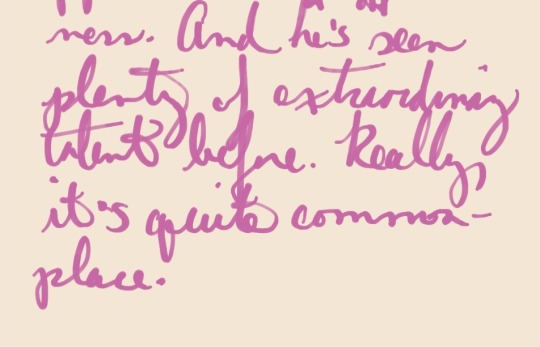 ness. And he's seen
plenty of extraordinary
talent before. Really,
it's quite common-
place.